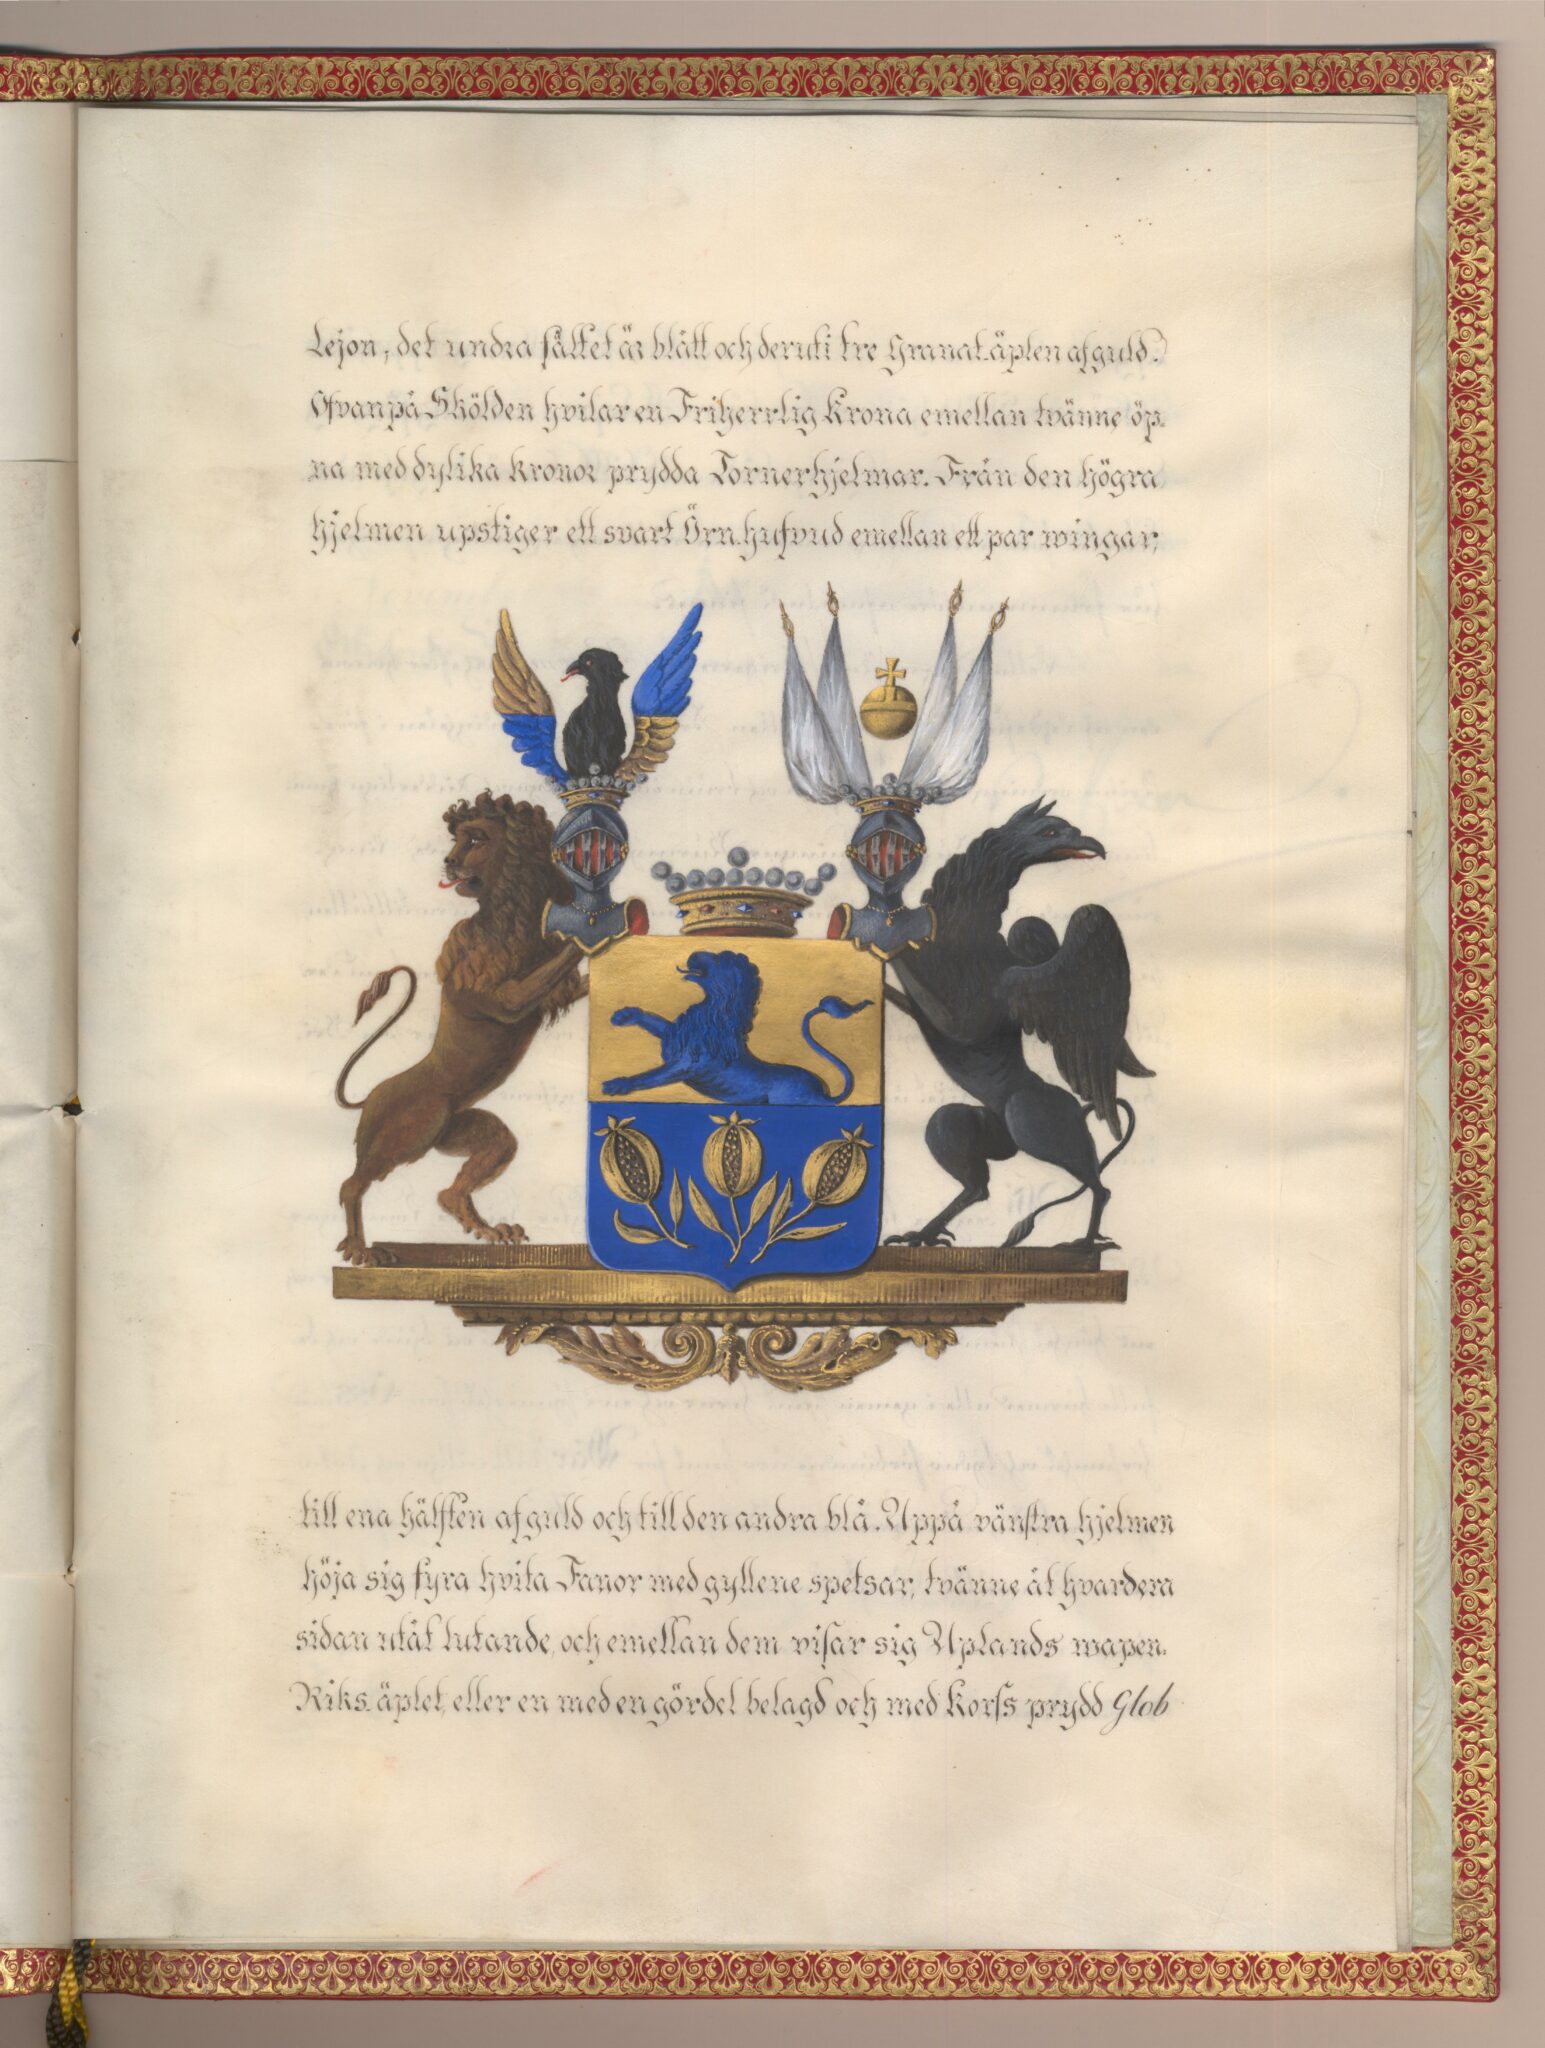 Lejon, det undra fältet är blått och deruti tre Granat-äplen af guld.
Ofvanpå Skölden hvilar en Friherrlig Krona emellan tvänne öp-
na med dylika kronor prydda Tornerhjelmar. Från den högra
hjelmen upstiger ett svart Örn-hufvud emellan ett par wingar,
till ena hälften af guld och till den andra blå. Uppå vänstra hjelmen
höja sig fyra hvita Fanor med gyllene spetsar, tvänne åt hvardera
sidan utåt lutande, och emellan dem visar sig Uplands wapen.
Riks-äplet, eller en med en gördel belagd och med Korss prydd Glob